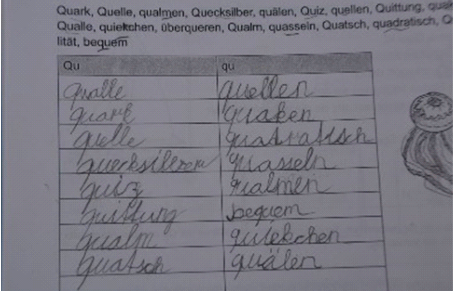 Quark, Quelle, qualmen, Quecksilber, quälen, Quiz, quellen, Quittung,
Qualle, quiekchen, überqueren, Qualm, quasseln, Quatsch, quadratisch,
lität, bequem
Qu qu
qualle quellen
quark quaken
quelle quatratisch
quecksilber quasseln
quiz qualmen
quittung bequem
qualm quiekchen
quatsch quälen